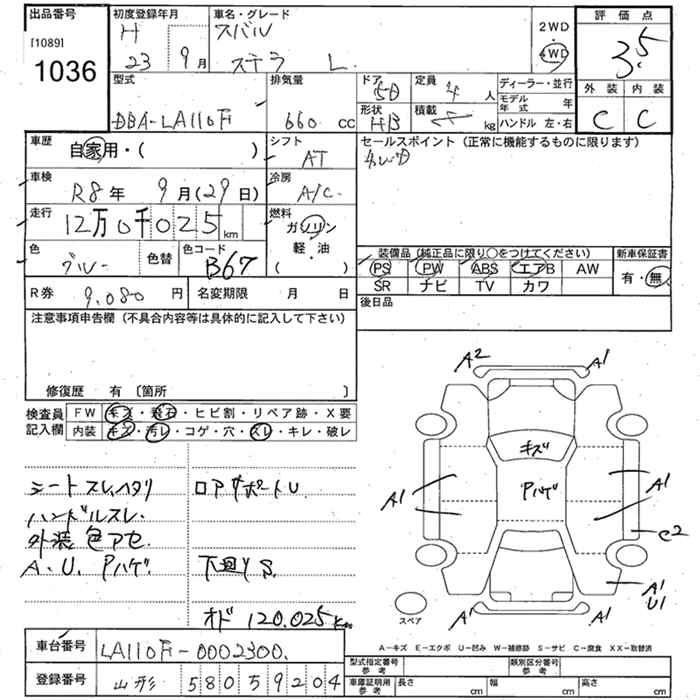 出品番号
[1089]
1036
初度登録年月
H
23 9月
車名・グレード
スバル
ステラ L
2WD
4WD
評価点
3.5
外装 内装
C C
型式
DBA-LA110F
排気量
660 cc
ドア
5D
定員
4 人
形状
HB
積載
kg
ディーラー・並行
モデル年式 年
ハンドル 左・右
車歴
自家用・( )
シフト
AT
車検
R8年 9月(29日)
冷房
A/C
走行
12万0千025km
燃料
ガソリン
軽・油
( )
色
ブルー
色替
色コード
B67
セールスポイント (正常に機能するものに限ります)
装備品 (純正品に限り○をつけてください)
PS PW ABS エアB AW
SR ナビ TV カワ
新車保証書
有・無
R券 9,080円
名変期限 月 日
後日品
注意事項申告欄 (不具合内容等は具体的に記入して下さい)
修復歴 有 〔箇所 〕
検査員記入欄
FW キズ・飛石・ヒビ割・リペア跡・X要
内装 キズ・汚レ・コゲ・穴・スレ・キレ・破レ
シートスレ、ヘタリ
ハンドルスレ.
外装色アセ.
A.U. Pハゲ.
ロアサポートU.
下廻りS.
オド 120.025km
A2 A1
キズ
Pハゲ
A1 A1
C2
A1
U1
A1 A1
スペア
A-キズ E-エクボ U-凹み W-補修跡 S-サビ C-腐食 XX-取替済
車台番号
LA110F-0002300.
登録番号
山形 580 59204
型式指定番号
参考
類別区分番号
参考
車庫証明用
参考
長さ cm
幅 cm
高さ cm